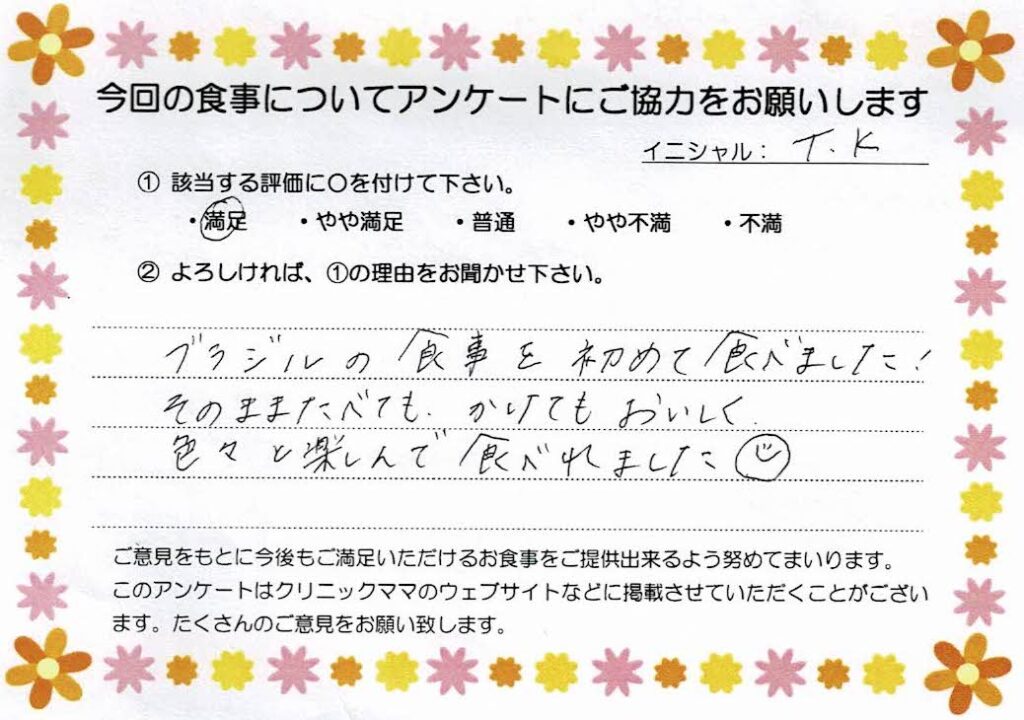 今回の食事についてアンケートにご協力をお願いします
イニシャル： T.K
① 該当する評価に〇を付けて下さい。
・満足 ・やや満足 ・普通 ・やや不満 ・不満
② よろしければ、①の理由をお聞かせ下さい。
ブラジルの食事を初めて食べました！
そのままたべても、かけてもおいしく
色々と楽しんで食べれました☺
ご意見をもとに今後もご満足いただけるお食事をご提供出来るよう努めてまいります。
このアンケートはクリニックママのウェブサイトなどに掲載させていただくことがござい
ます。たくさんのご意見をお願い致します。